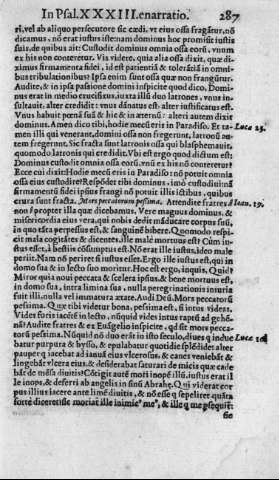 In Psal. XXXIII. enarratio. 287
ri, vel ab aliquo persecutore sic cædi, vt eius ossa frāgātur, nō
dicamus, nō erat iustus iste: nam dominus hoc promisit iustis
suis, de quibus ait: Custodit dominus omnia ossa eorū, vnum
ex his non conteretur. Vis videre, quia alia ossa dixit, quæ di-
ximus firmamenta fidei, id est patientiā & tolerātiā in omni-
bus tribulationibus? Ipsa enim sunt ossa quæ non frangūtur.
Audite, & in ipsa passione domini inspicite quod dico. Domi-
nus erat in medio crucifixus, iuxta illū duo latrones, vnus in-
sultauit, alter credidit: vnus dānatus est, alter iustificatus est.
Vnus habuit pœnā suā & hic & in æternū: alteri autem dixit
dominus, Amen dico tibi, hodie mecū eris in Paradiso. Et ta- Luc.æ 23.
men illi qui venerant, domini ossa non fregerūt, latronū au-
tem fregerunt. Sic fracta sunt latronis ossa qui blasphemauit,
quomodo latronis qui credidit. Vbi est ergo quod dictum est:
Dominus custodit omnia ossa eorū, vnū ex his nō conteretur?
Ecce cui dixit: Hodie mecū eris in Paradiso: nō potuit omnia
ossa eius custodire? Respōdet tibi dominus: imò custodiui nā
firmamentū fidei ipsius frangi nō potuit illis ictibus, quibus
crura sunt fracta. Mors peccatorum pessima. Attendite fratres Ioan. 19.
mors propter illa quæ dicebamus. Vere magnus dominus, &
misericordia eius vera, qui nobis dedit māducare corpus suū,
in quo tāta perpessus est, & sanguinē bibere. Quomodo respi-
cit mala cogitātes & dicentes, Ille male mortuus est? Cùm iu-
stus esset, à bestiis cōsumptus est? Nō erat ille iustus, ideo male
periit. Nam nō periret si iustus esset. Ergo ille iustus est, qui in
domo sua & in lecto suo moritur. Hoc est ergo, inquis,
Miror quia noui peccata & scelera ipsius, & bene mortuus est,
in domo sua, intra limina sua, nulla peregrinationis iniuria
suit illi, nulla vel immatura ætate. Audi Deū, Mors peccatorū
pessima. Quæ tibi videtur bona, pessima est, si intus videas.
Vides foris iacētē in lecto, nūquid vides intus rapi ad gehē-
nā? Audite fratres & ex Euangelio inspicite, qd sit mors pecca-
torū pessima. Nūquid nō duo erāt in isto seculo, diues q indue- Lucæ 16.
batur purpura & bysso, & epulabatur quotidie splēdide: alter
pauper q iacebat ad ianuā eius vlcerosus, & canes veniebāt &
lingebāt vlcera eius, & desiderabat saturari de micis quæ cade-
bāt de mēsa diuitis? Cōtigit autē mori inopē illū. iustus erat il
le inops, & deferri ab angelis in sinū Abrahę. Qui viderat cor-
pus illius iacere ante limē diuitis, & nō esse q sepeliret
forte diceret: Sic moriat ille
&